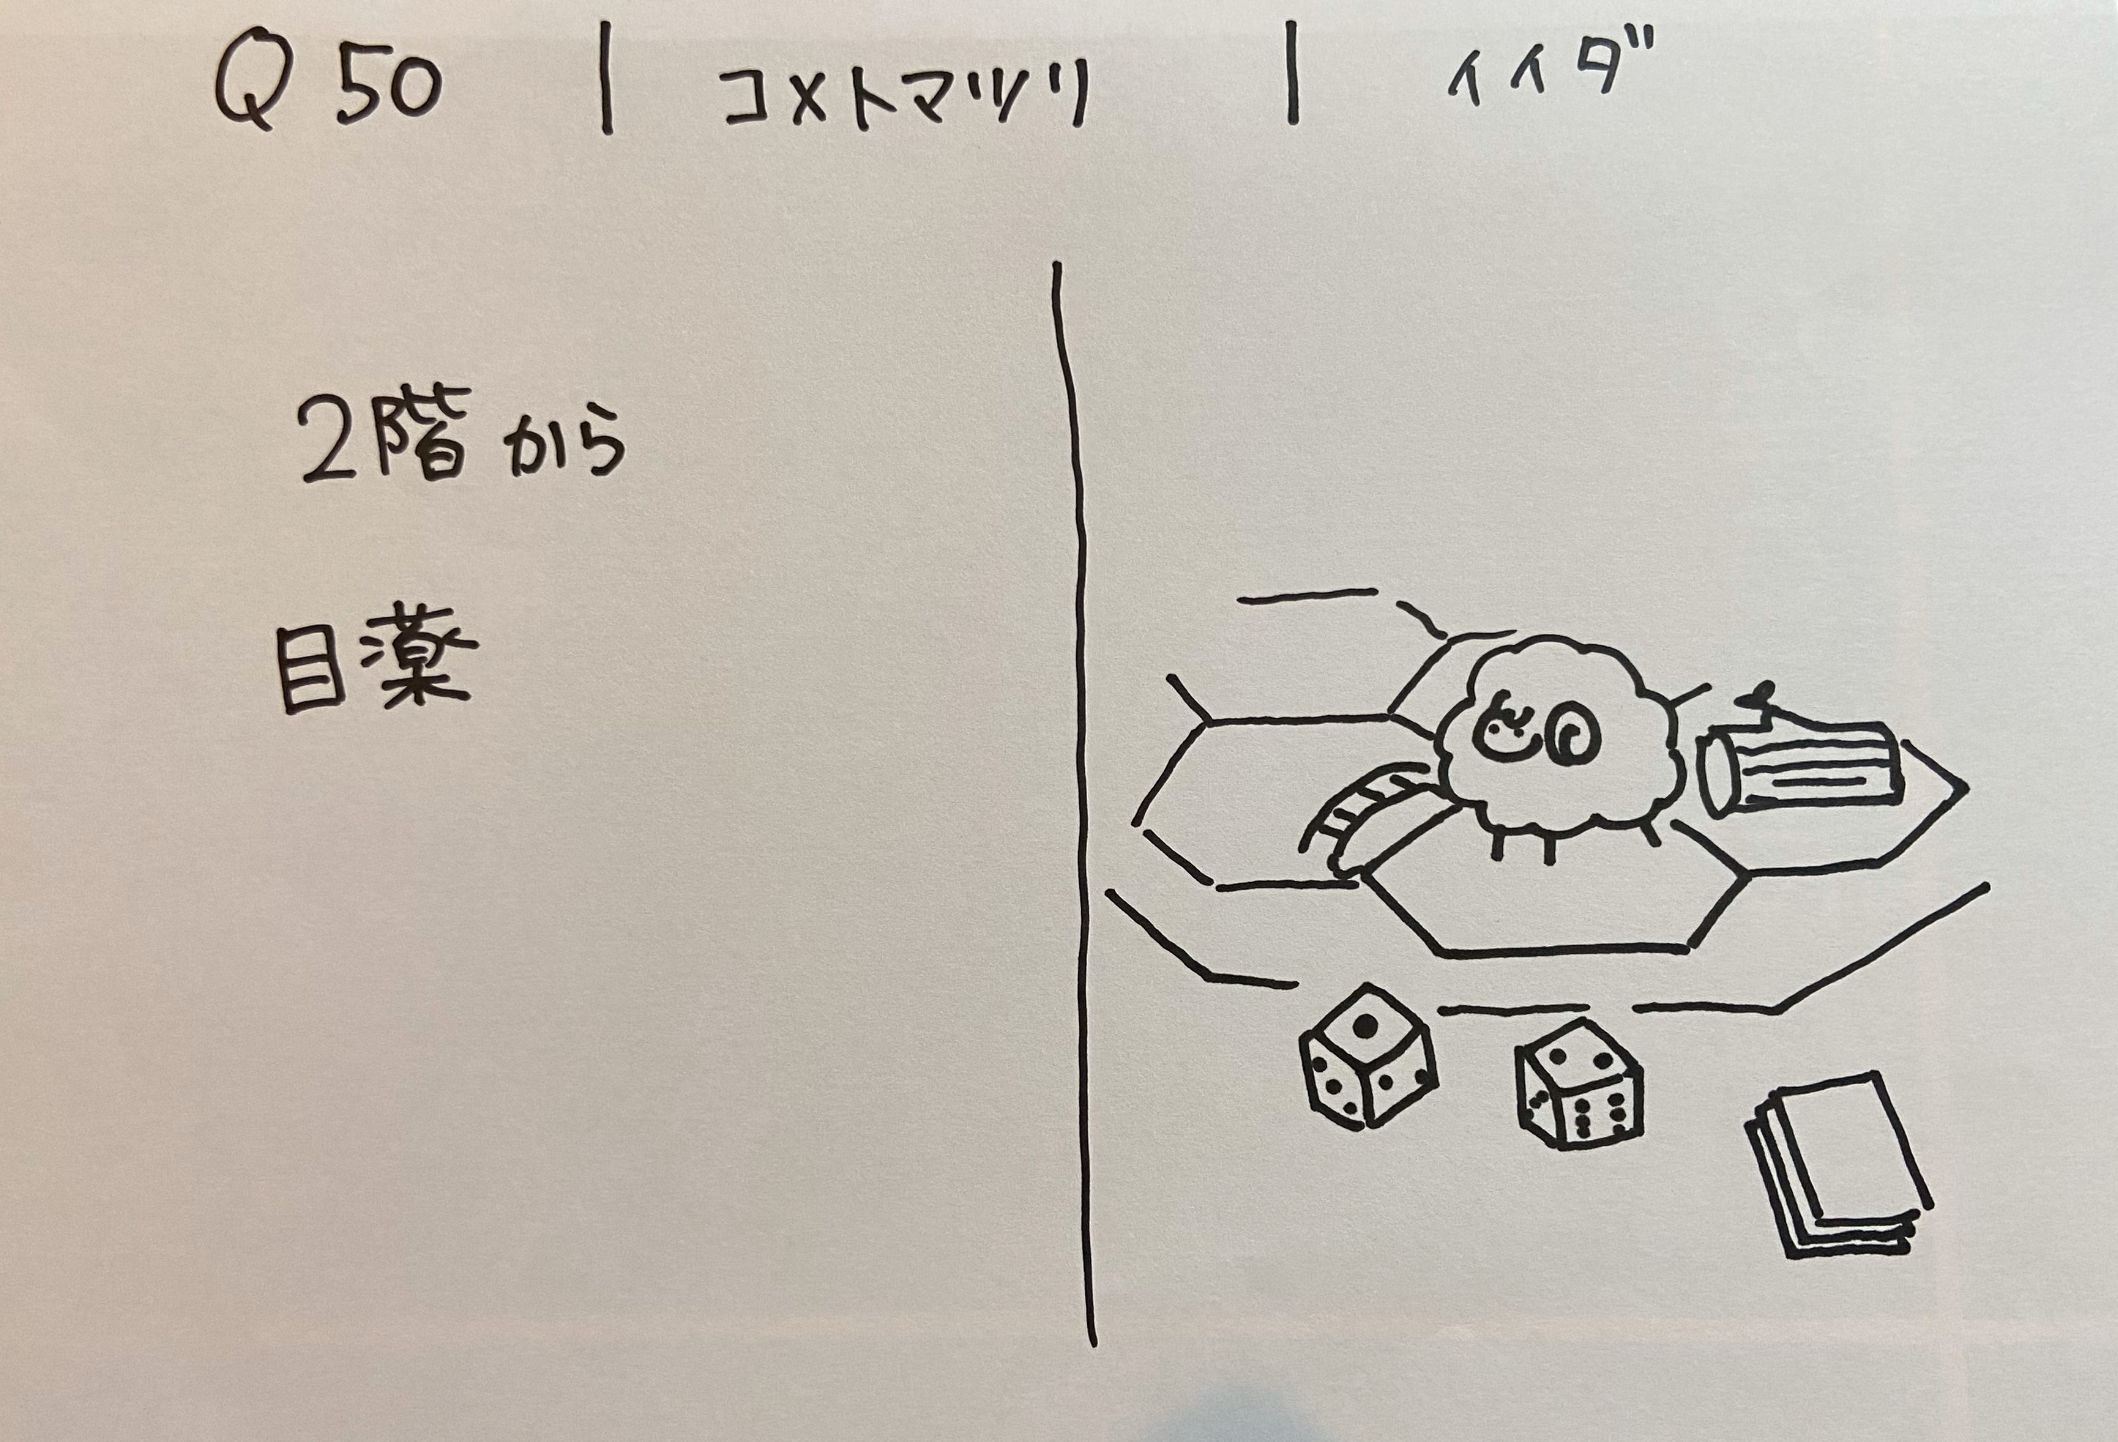 Q50 | コメトマツリ | イイダ
2階から
目薬